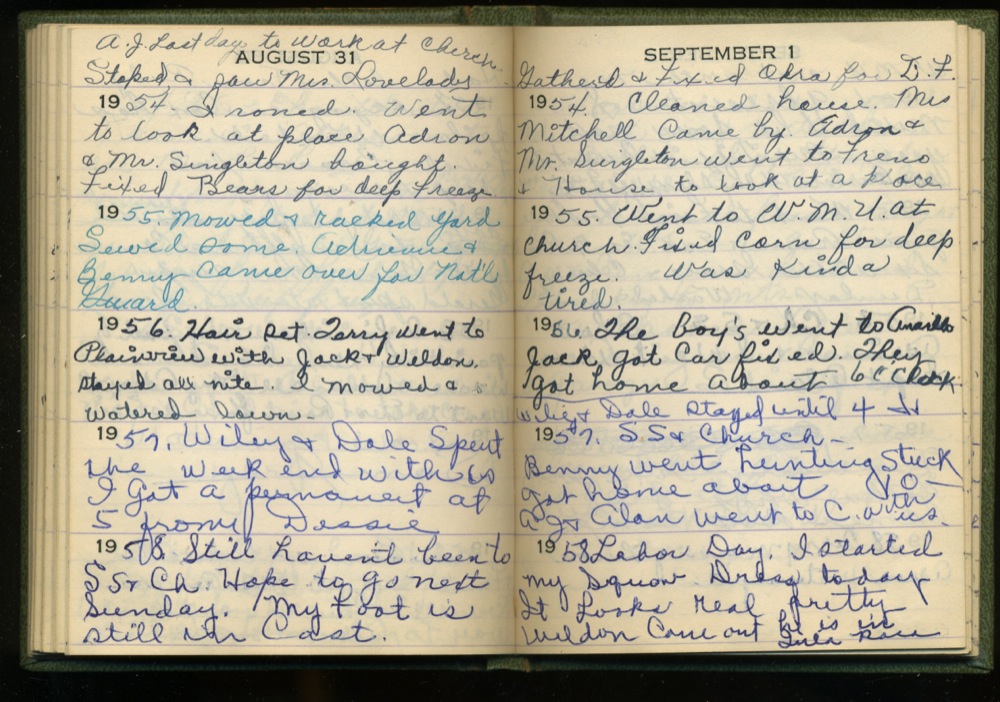 A.J. Last day to work at Church.
AUGUST 31
Stoped & saw Mrs. Lovelady
1954. I roned. Went
to look at place Adron
& Mr. Singleton bought.
Fixed Beans for deep freeze
1955. Mowed & racked yard
Sewed some. Adrienne &
Benny came over for Nat'l
Guard.
1956. Hair set. Terry went to
Plainview with Jack & Weldon.
stayed all nite. I mowed &
watered lawn.
1957. Wiley & Dale Spent
the week end with us
I Got a permanent at
5 from Dessie
1958. Still haven't been to
SS & Ch. Hope to go next
Sunday. My foot is
still in Cast.
SEPTEMBER 1
Gatherd & Fixed Okra for D.F.
1954. Cleaned house. Mrs
Mitchell Came by. Adron &
Mr. Singleton went to
& House to look at a Place
1955. Went to W.M.U. at
church. Fixed corn for deep
freeze. Was Kinda
tired.
1956. The Boy's went to Amarillo
Jack got Car fixed. They
got home about 6 O'Clock
Wiley & Dale stayed until 4
1957. SS & Church -
Benny went hunting Stuck
got home about 10 -
A.J. & Alan went to C. with us.
1958 Labor Day. I started
my Squaw Dress today
It Looks real pretty
Weldon Came out he is in